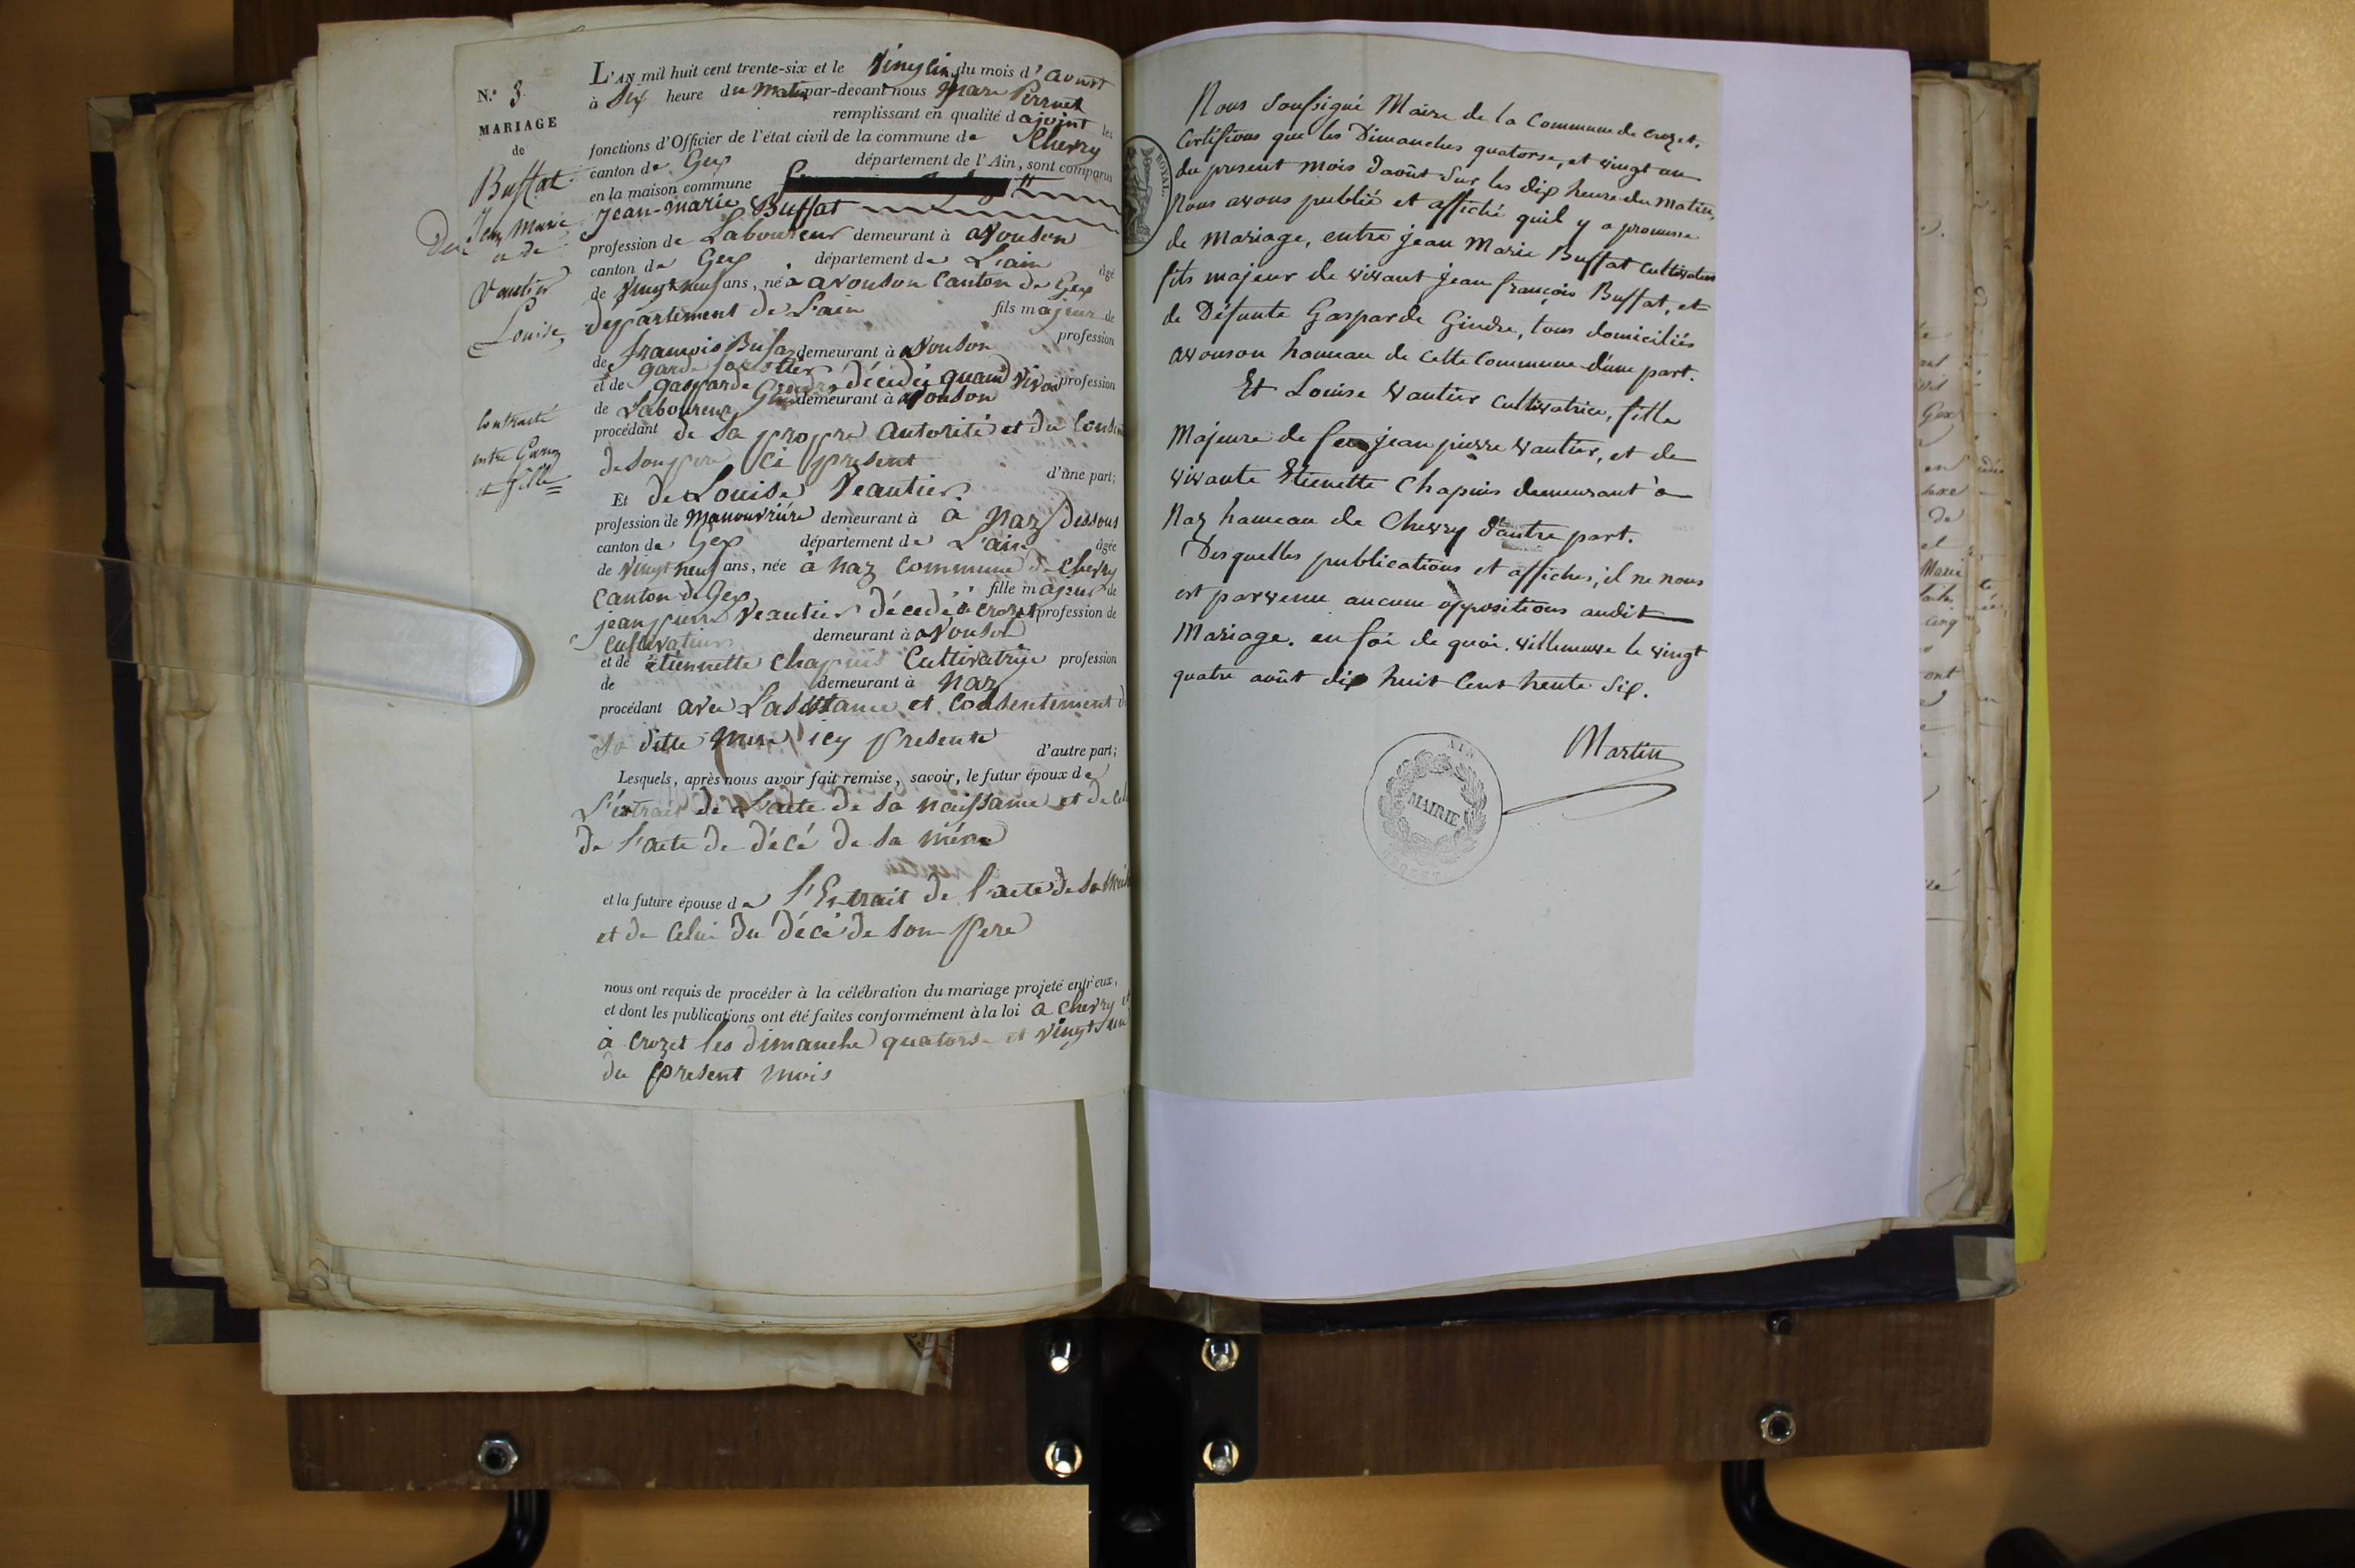 N.º 3
MARIAGE
de
Buffat
Jean Marie
et de
Vautier
Louise
Contracté
entre Garçon
et fille
L'AN mil huit cent trente-six et le Vingt cinq du mois d'Aoust
à Six heure du Matin par-devant nous Marc Perruet
remplissant en qualité d'ajoint les
fonctions d'Officier de l'état civil de la commune de Chevry
canton de Gex département de l'Ain, sont comparus
en la maison commune
Jean-marie Buffat
profession de Laboureur demeurant à avouson
canton de Gex département de L'ain âgé
de Vingt neuf ans, né à avouson Canton de Gex
département de L'ain fils majeur de
françois Bufaz demeurant à avouson profession
de garde forestier
et de gasparde Gindre décédée quand vivait profession
de Laboureur demeurant à avouson
procédant de Sa propre autorité et du Consent
de son père ici présent d'une part;
Et de Louise Veautier
profession de Manouvriére demeurant à a Naz dessous
canton de Gex département de L'ain âgée
de Vingt neuf ans, née à naz Commune de Chevry
Canton de Gex fille majeur de
jean pierre Veautier décedé à crozet profession de
Cultivatieur demeurant à avouson
et de étiennette Chapuis Cultivatrice profession
de demeurant à Naz
procédant avec L'assistance et Consentement d
Sa ditte Mere icy presente d'autre part;
Lesquels, après nous avoir fait remise, savoir, le futur époux de
L'extrait de L'acte de sa naissance et de celui
de l'acte de décé de sa mére
et la future épouse de l'Extrait de l'acte de sa
et de Celui du décé de son pere
nous ont requis de procéder à la célébration du mariage projeté entr'eux,
et dont les publications ont été faites conformément à la loi à Chevry et
à Crozet les dimanche quatorse et Vingt un
du present mois
ROYAL.
Nous Soussigné Maire de la Commune de Crozet,
Certifions que les Dimanches quatorse, et vingt un
du present mois d'août sur les dix heure du Matin,
Nous avons publié et affiché quil y a promesse
de Mariage, entre jean Marie Buffat Cultivateur
fils majeur de vivant jean françois Buffat, et
de Défunte Gasparde Gindre, tous domiciliés
avouson hameau de cette Commune d'une part.
Et Louise Vautier Cultivatrice, fille
Majeure de feu jean pierre Vautier, et de
vivante Etienette Chapuis demeurant à
Naz hameau de Chevry d'autre part.
Desquelles publications et affiches, il ne nous
est parvenu aucune oppositions audit
Mariage. en foi de quoi. villeneuve le vingt
quatre août dix huit Cent trente Six.
Martin
AIN
MAIRIE
CROZET